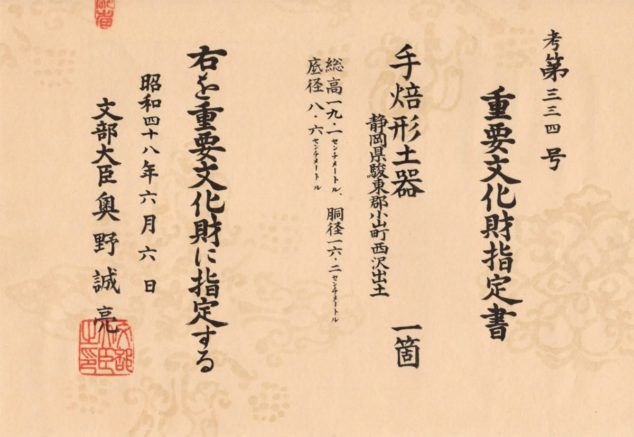 考第三三四号
重要文化財指定書
手焙形土器 一箇
静岡県駿東郡小山町西沢出土
総高一九・一センチメートル、胴径一六・二センチメートル
底径八・六センチメートル
右を重要文化財に指定する
昭和四十八年六月六日
文部大臣奥野誠亮
文部大臣之印